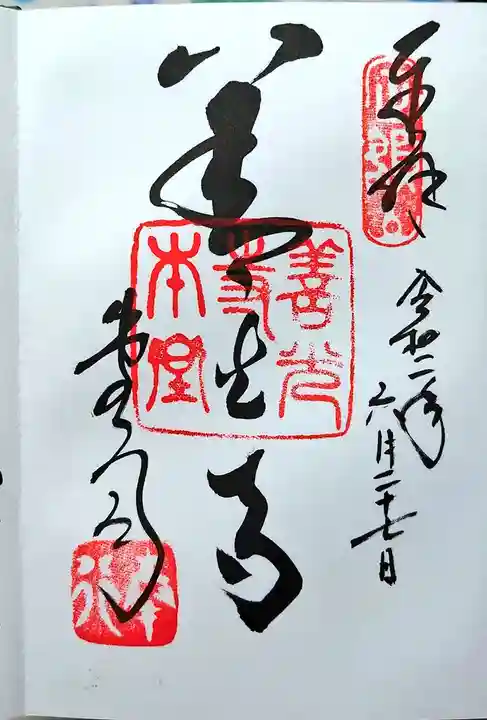 奉拝
令和二年
六月二十七日
善光寺
善光
寺
本堂